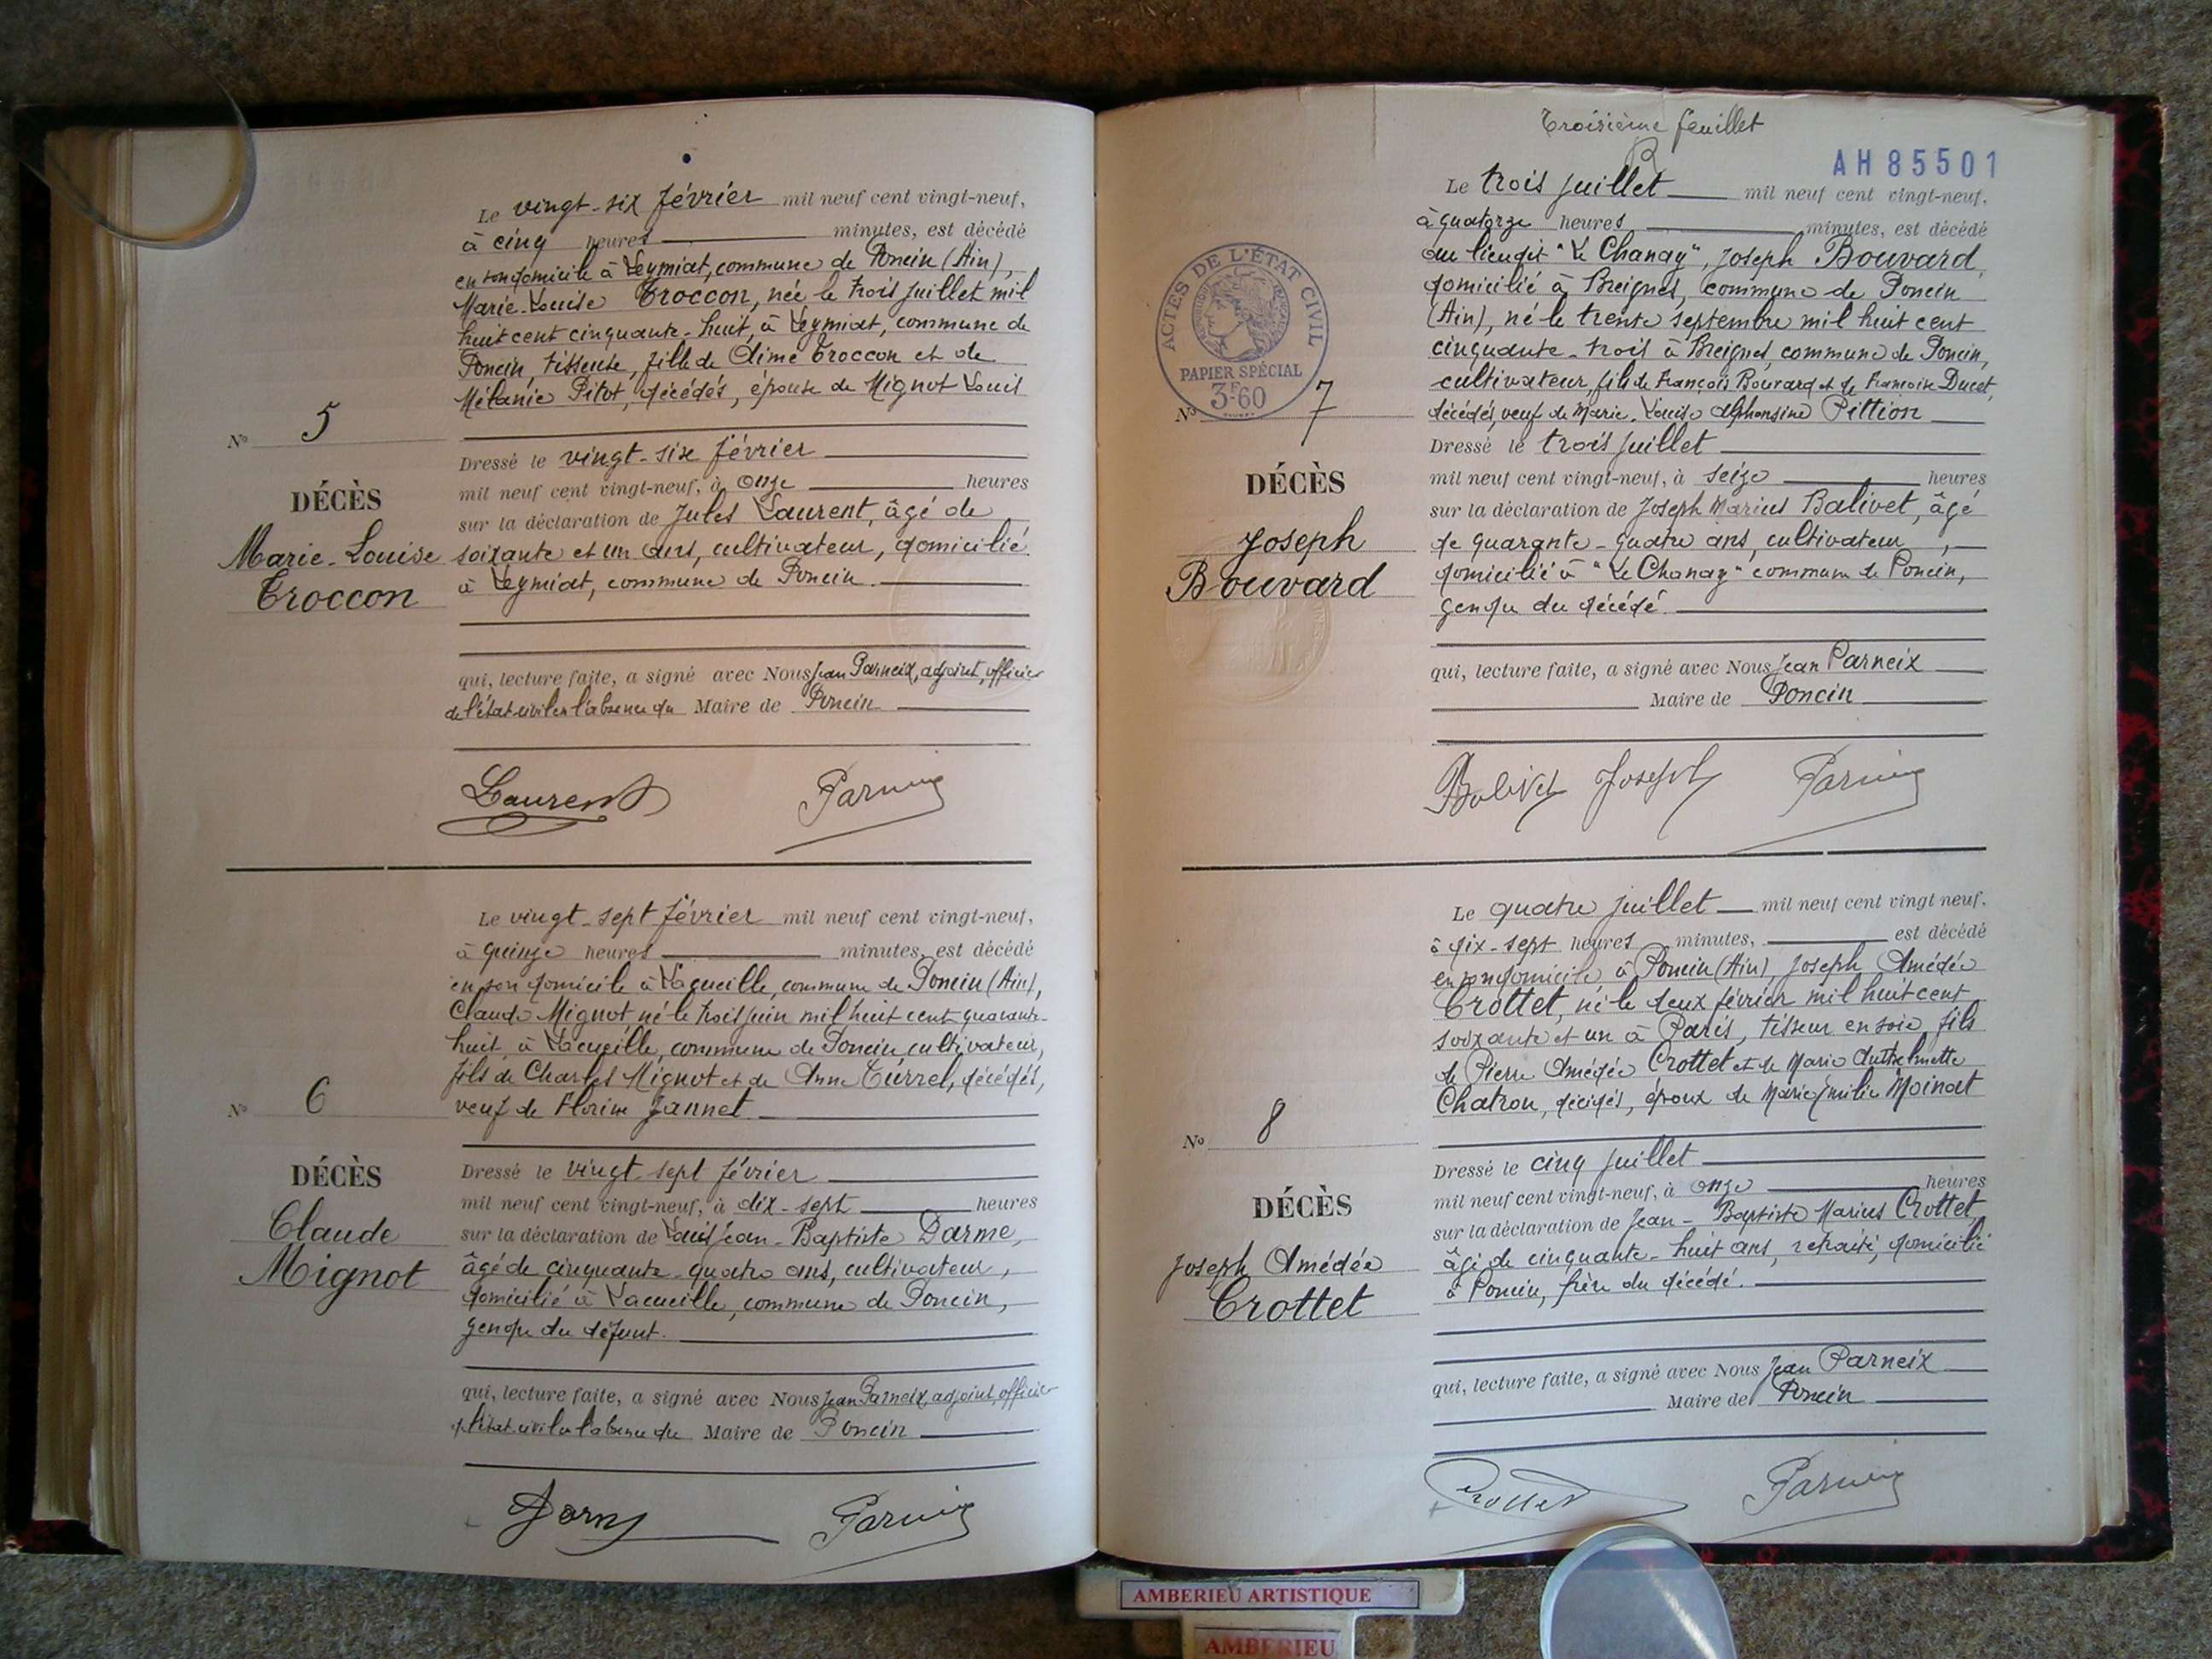 Le vingt-six février mil neuf cent vingt-neuf,
à cinq heures minutes, est décédé
en son domicile à Leymiat, commune de Poncin (Ain),
Marie-Louise Croccon, née le trois juillet mil
huit cent cinquante-huit, à Leymiat, commune de
Poncin, tisseuse, fille de Aimé Croccon et de
Mélanie Pitot, décédés, épouse de Mignot Louis
N° 5
DÉCÈS
Marie-Louise
Croccon
Dressé le vingt-six février
mil neuf cent vingt-neuf, à onze heures
sur la déclaration de Jules Laurent, âgé de
soixante et un ans, cultivateur, domicilié
à Leymiat, commune de Poncin.
qui, lecture faite, a signé avec Nous Jean Parneix, adjoint, officier
de l'état-civil en l'absence du Maire de Poncin
Laurent Parneix
Le vingt-sept février mil neuf cent vingt-neuf,
à quinze heures minutes, est décédé
en son domicile à Lacueille, commune de Poncin (Ain),
Claude Mignot, né le trois juin mil huit cent quarante-
huit, à Lacueille, commune de Poncin, cultivateur,
fils de Charles Mignot et de Anne Currel, décédés,
veuf de Florine Jannet
N° 6
DÉCÈS
Claude
Mignot
Dressé le vingt-sept février
mil neuf cent vingt-neuf, à dix-sept heures
sur la déclaration de Louis Jean-Baptiste Darme,
âgé de cinquante-quatre ans, cultivateur,
domicilié à Lacueille, commune de Poncin,
gendre du défunt.
qui, lecture faite, a signé avec Nous Jean Parneix, adjoint, officier
de l'état-civil en l'absence du Maire de Poncin
Darme Parneix
Troisième feuillet
AH85501
Le trois juillet mil neuf cent vingt-neuf,
à quatorze heures minutes, est décédé
au lieudit "Le Chanay", Joseph Bouvard,
domicilié à Breignes, commune de Poncin
(Ain), né le trente septembre mil huit cent
cinquante-trois à Breignes, commune de Poncin,
cultivateur, fils de François Bouvard et de Francoise Ducet,
décédés, veuf de Marie-Louise Alphonsine Pittion
ACTES DE L'ÉTAT CIVIL
PAPIER SPÉCIAL
3F60
N° 7
DÉCÈS
Joseph
Bouvard
Dressé le trois juillet
mil neuf cent vingt-neuf, à seize heures
sur la déclaration de Joseph Marius Balivet, âgé
de quarante-quatre ans, cultivateur,
domicilié à "Le Chanay" commune de Poncin,
gendre du décédé.
qui, lecture faite, a signé avec Nous Jean Parneix
Maire de Poncin
Balivet Joseph Parneix
Le quatre juillet mil neuf cent vingt neuf,
à dix-sept heures minutes, est décédé
en son domicile, à Poncin (Ain), Joseph Amédée
Crottet, né le deux février mil huit cent
soixante et un à Paris, tisseur en soie, fils
de Pierre Amédée Crottet et de Marie Anthelmette
Chatron, décédés, époux de Marie Emilie Moinat
N° 8
DÉCÈS
Joseph Amédée
Crottet
Dressé le cinq juillet
mil neuf cent vingt-neuf, à onze heures
sur la déclaration de Jean-Baptiste Marius Crottet,
âgé de cinquante-huit ans, retraité, domicilié
à Poncin, frère du décédé.
qui, lecture faite, a signé avec Nous Jean Parneix
Maire de Poncin
Crottet Parneix
AMBERIEU ARTISTIQUE
AMBERIEU